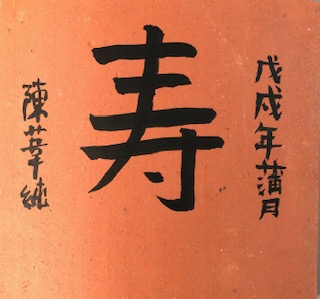 戊戌年蒲月
寿
陳華練